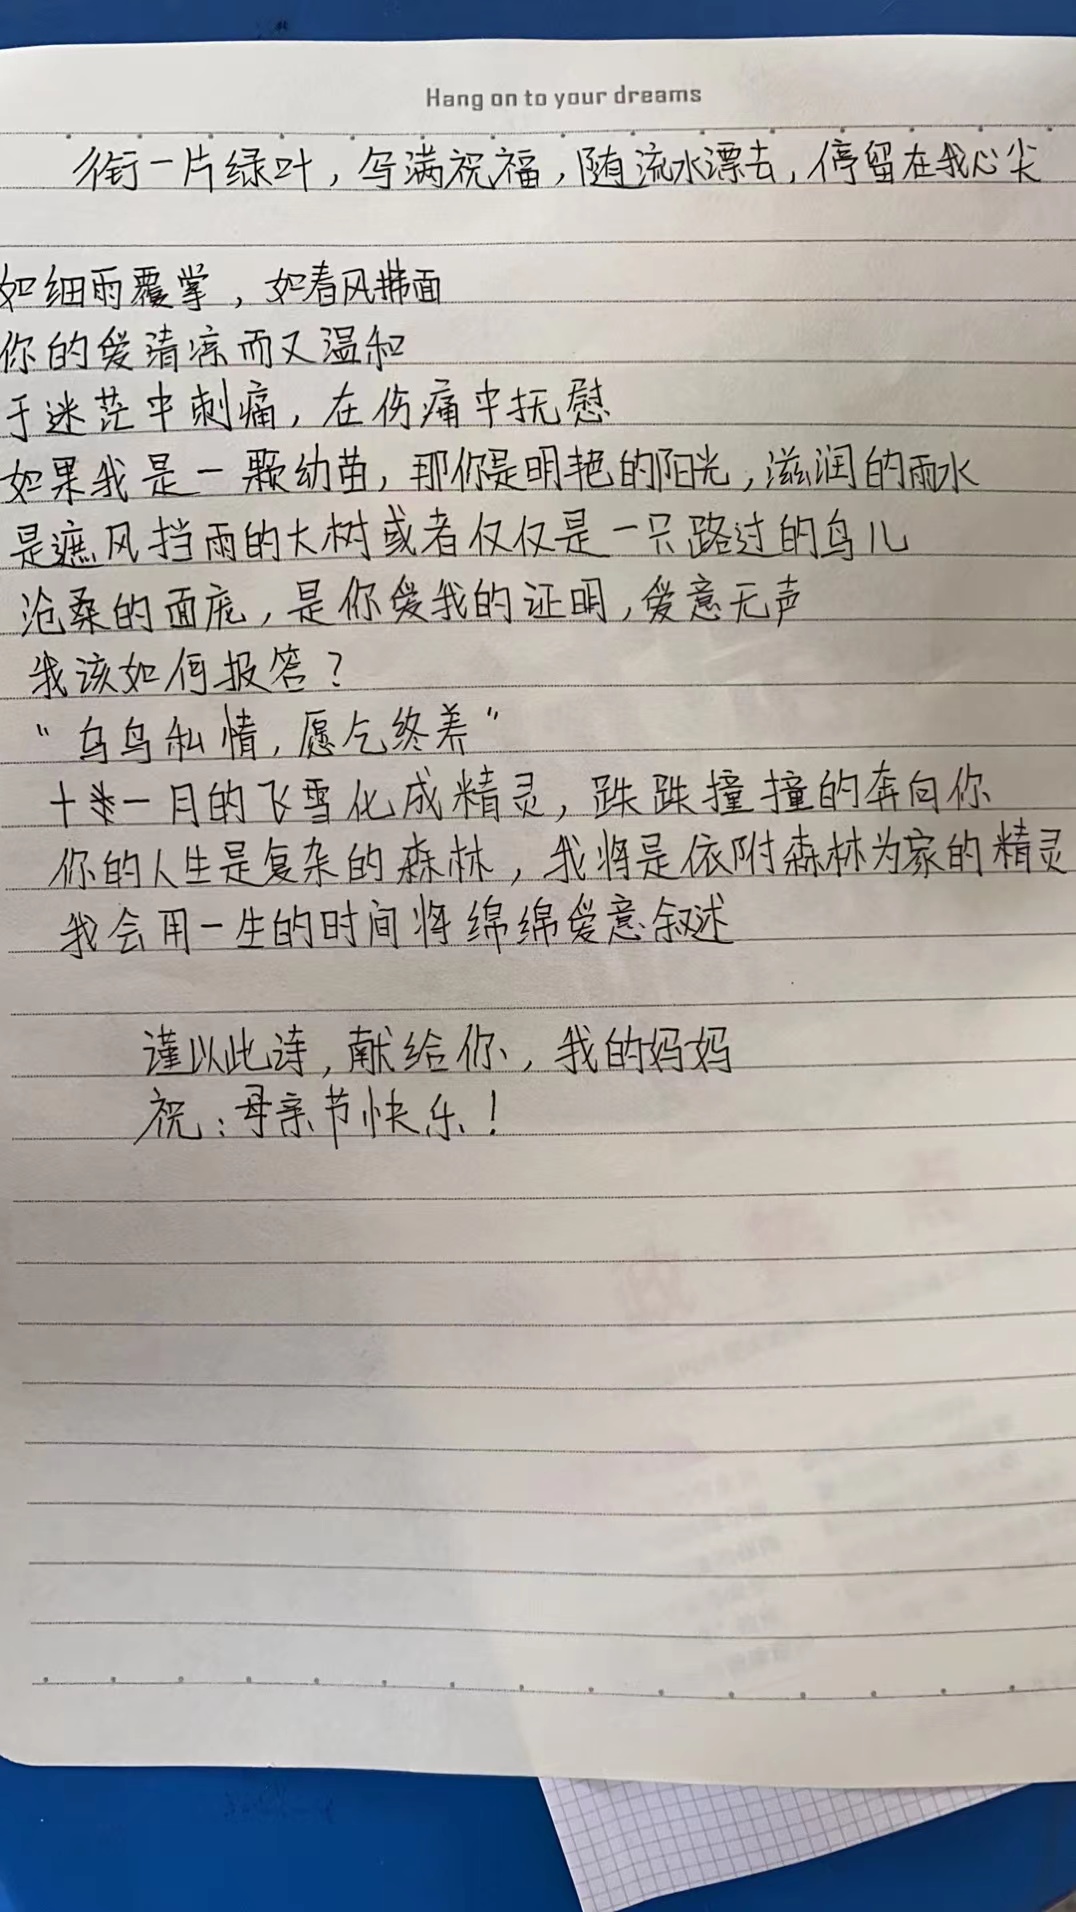 Hang on to your dreams
衔一片绿叶，写满祝福，随流水漂去，停留在我心尖
如细雨覆掌，如春风拂面
你的爱清凉而又温和
于迷茫中刺痛，在伤痛中抚慰
如果我是一颗幼苗，那你是明艳的阳光，滋润的雨水
是遮风挡雨的大树或者仅仅是一只路过的鸟儿
沧桑的面庞，是你爱我的证明，爱意无声
我该如何报答？
“乌鸟私情，愿乞终养”
十一月的飞雪化成精灵，跌跌撞撞的奔向你
你的人生是复杂的森林，我将是依附森林为家的精灵
我会用一生的时间将绵绵爱意叙述
谨以此诗，献给你，我的妈妈
祝：母亲节快乐！